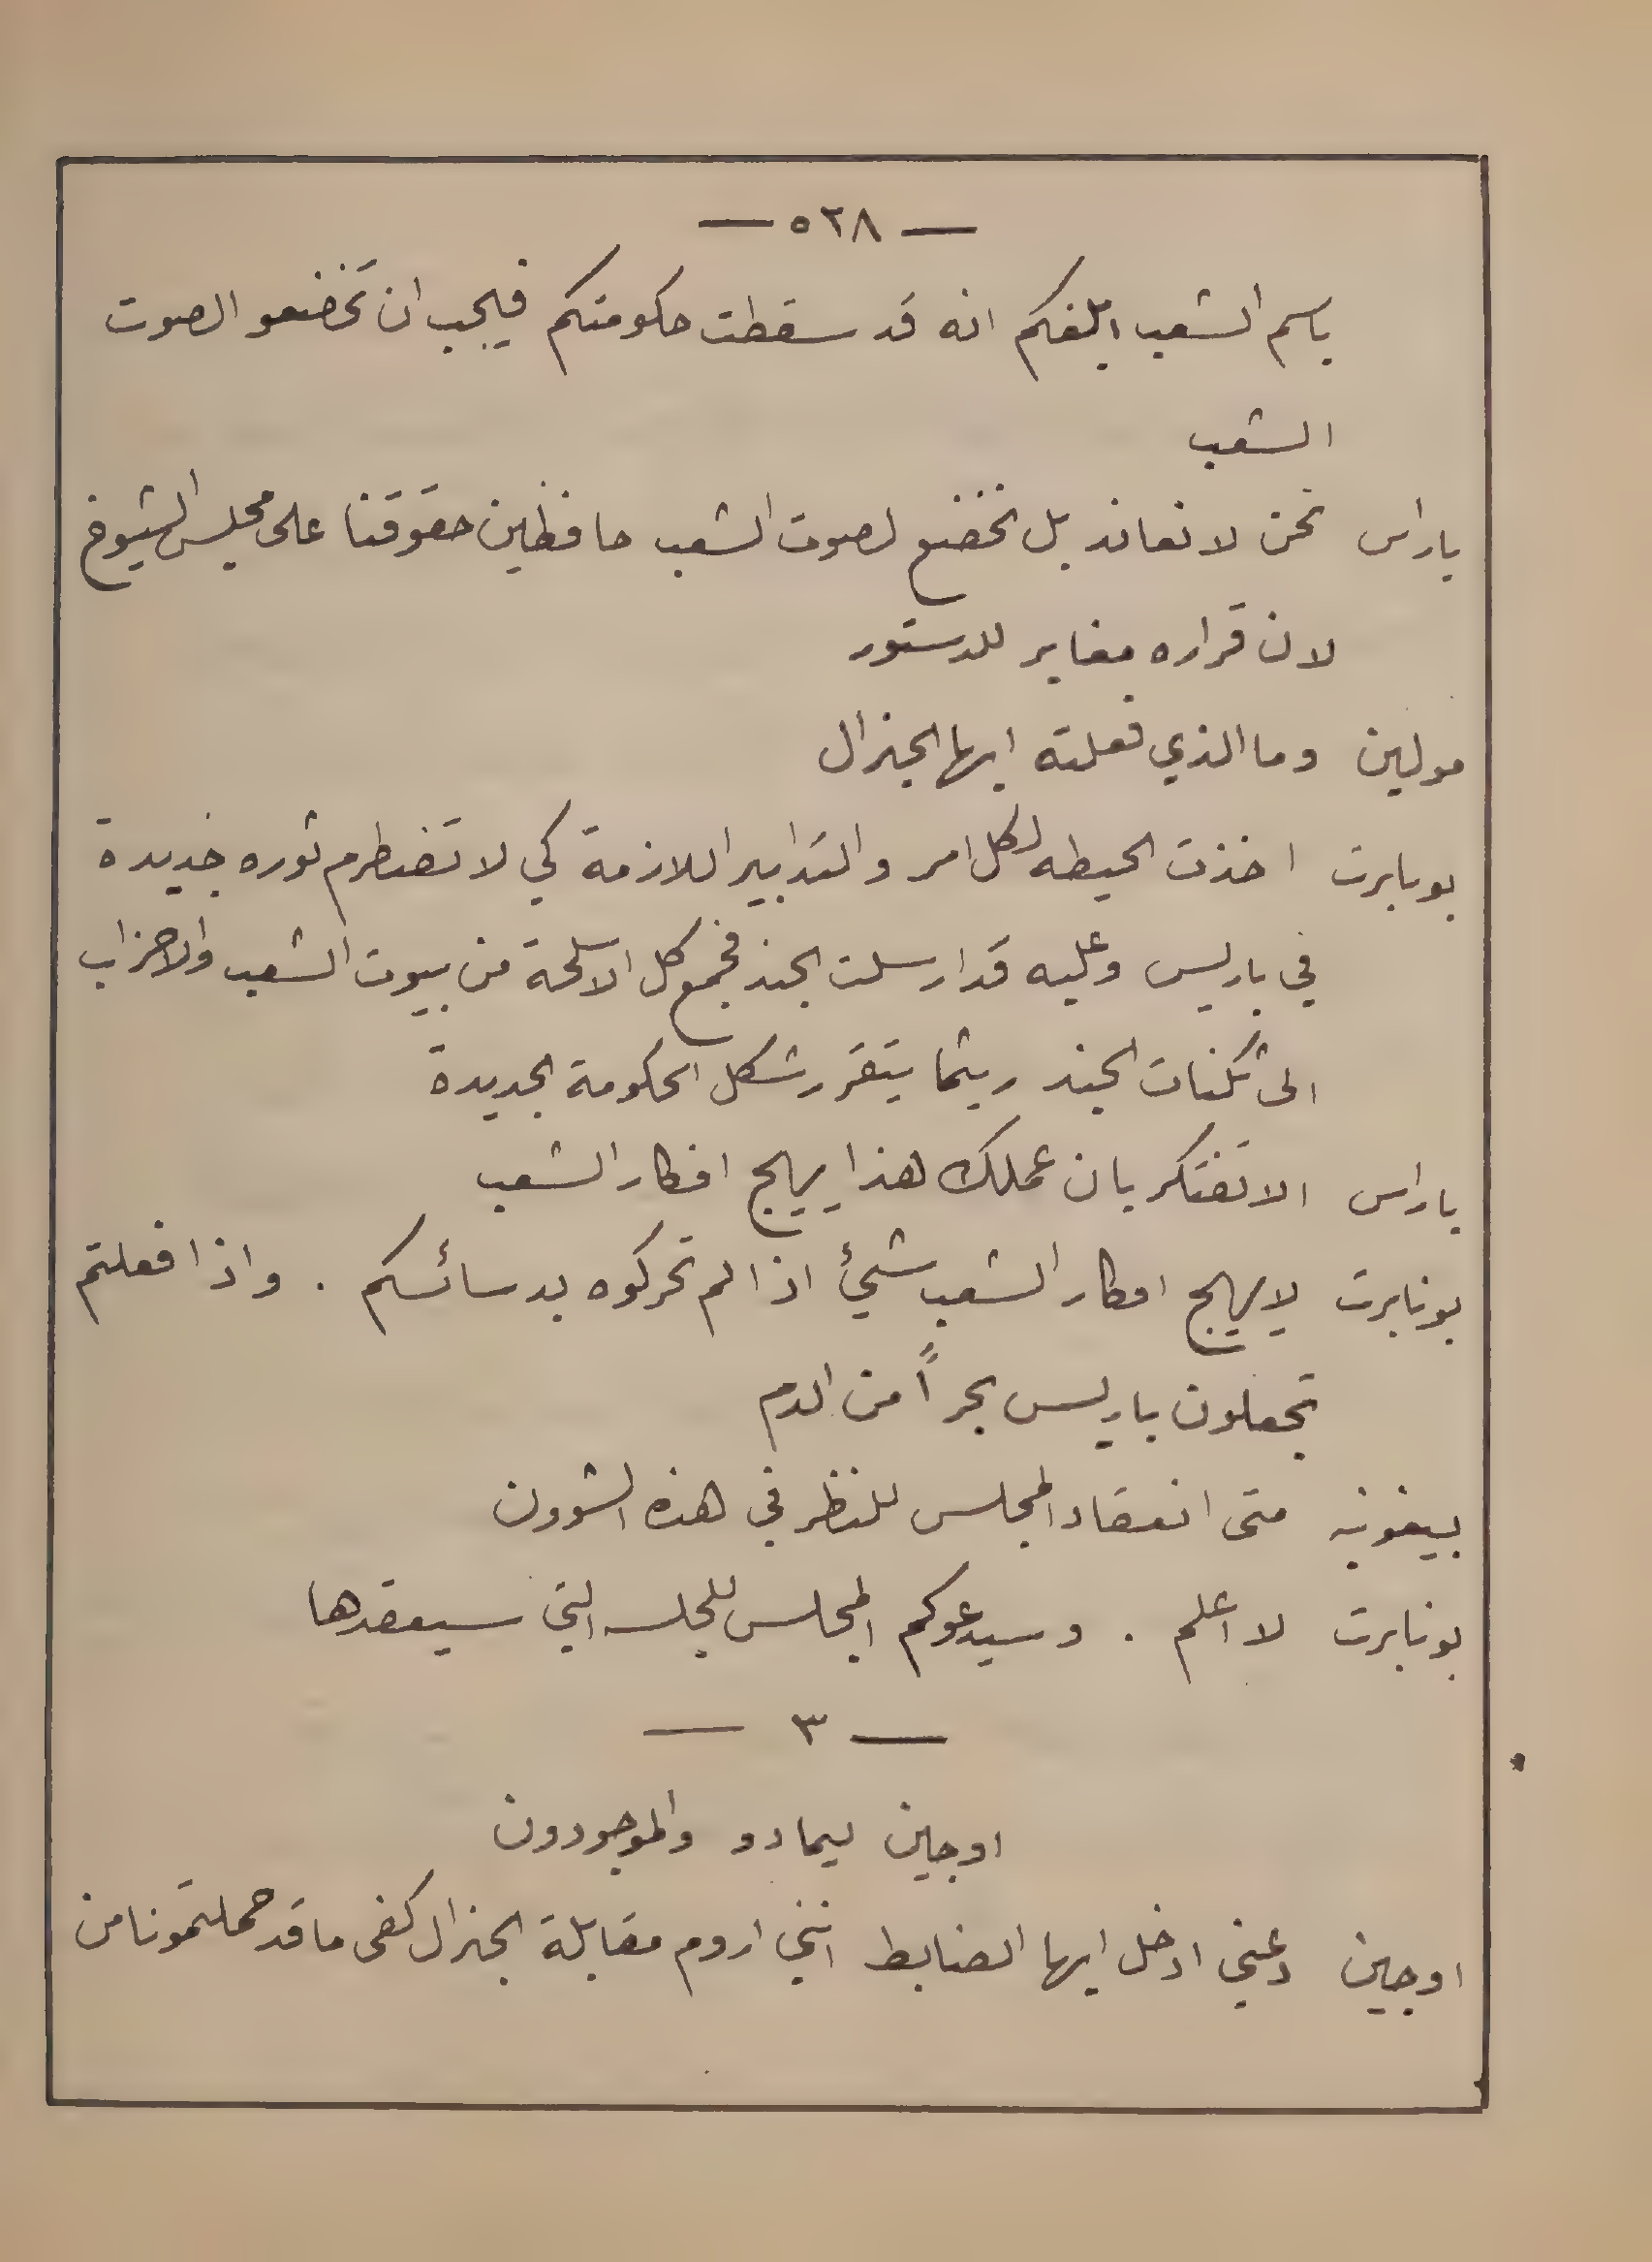 — ٥٢٨ —
باسم الشعب ابلغكم انه قد سقطت حكومتكم فيجب ان تخضعو الصوت
الشعب
باراس نحن لا نعاند بل نخضع لصوت الشعب حافظين حقوقنا على مجلس الشيوخ
لان قراره مغاير للدستور
مولين وما الذي فعلته ايها الجنرال
بونابرت اخذت الحيطه لكل امر والتدابير اللازمة كي لا تضطرم ثوره جديدة
في باريس وعليه قد ارسلت الجند فجمع كل الاسلحة من بيوت الشعب والاحزاب
الى ثكنات الجند ريثما يتقرر شكل الحكومة الجديدة
باراس الا تفتكر بان عملك هذا يهيج افكار الشعب
بونابرت لا يهيج افكار الشعب شيئ اذا لم تحركوه بدسائسكم . واذا فعلتم
تجعلون باريس بحراً من الدم
بيغونيه متى انعقاد المجلس للنظر في هذه الشوون
بونابرت لا اعلم . وسيدعوكم المجلس للجلسه التي سيعقدها
— ٣ —
اوجين ليمادو والموجودون
اوجين دعني ادخل ايها الضابط انني اروم مقابلة الجنرال كفى ما قد حملتمونا من